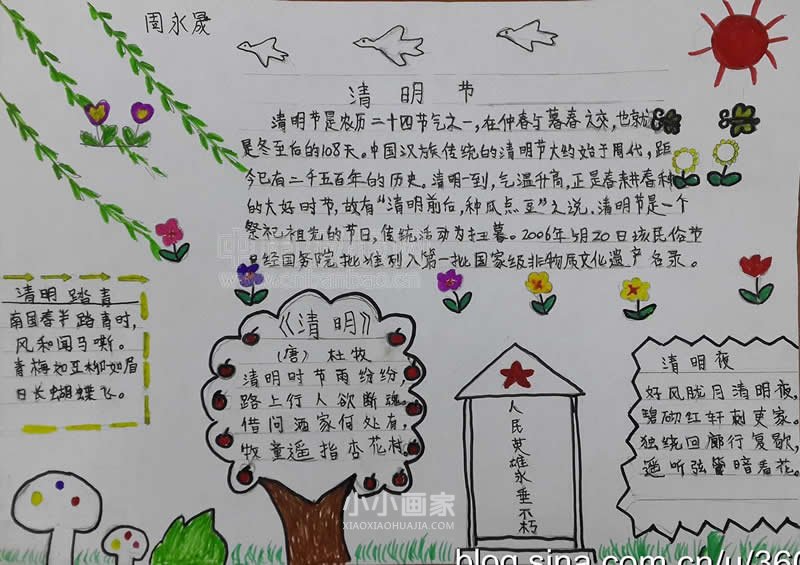 周永晟
清明节
清明节是农历二十四节气之一,在仲春与暮春之交,也就
是冬至后的108天。中国汉族传统的清明节大约始于周代,距
今已有二千五百年的历史。清明一到,气温升高,正是春耕春种
的大好时节,故有“清明前后,种瓜点豆”之说。清明节是一个
祭祀祖先的节日,传统活动为扫墓。2006年5月20日该民俗节
日经国务院批准列入第一批国家级非物质文化遗产名录。
清明踏青
南国春半踏青时,
风和闻马嘶。
青梅如豆柳如眉
日长蝴蝶飞。
《清明》
(唐) 杜牧
清明时节雨纷纷,
路上行人欲断魂。
借问酒家何处有,
牧童遥指杏花村。
人民英雄永垂不朽
清明夜
好风胧月清明夜,
碧砌红轩刺史家。
独绕回廊行复歇,
遥听弦管暗看花。
小小画家
XIAOXIAOHUAJIA.COM
blog.sina.com.cn/u/360